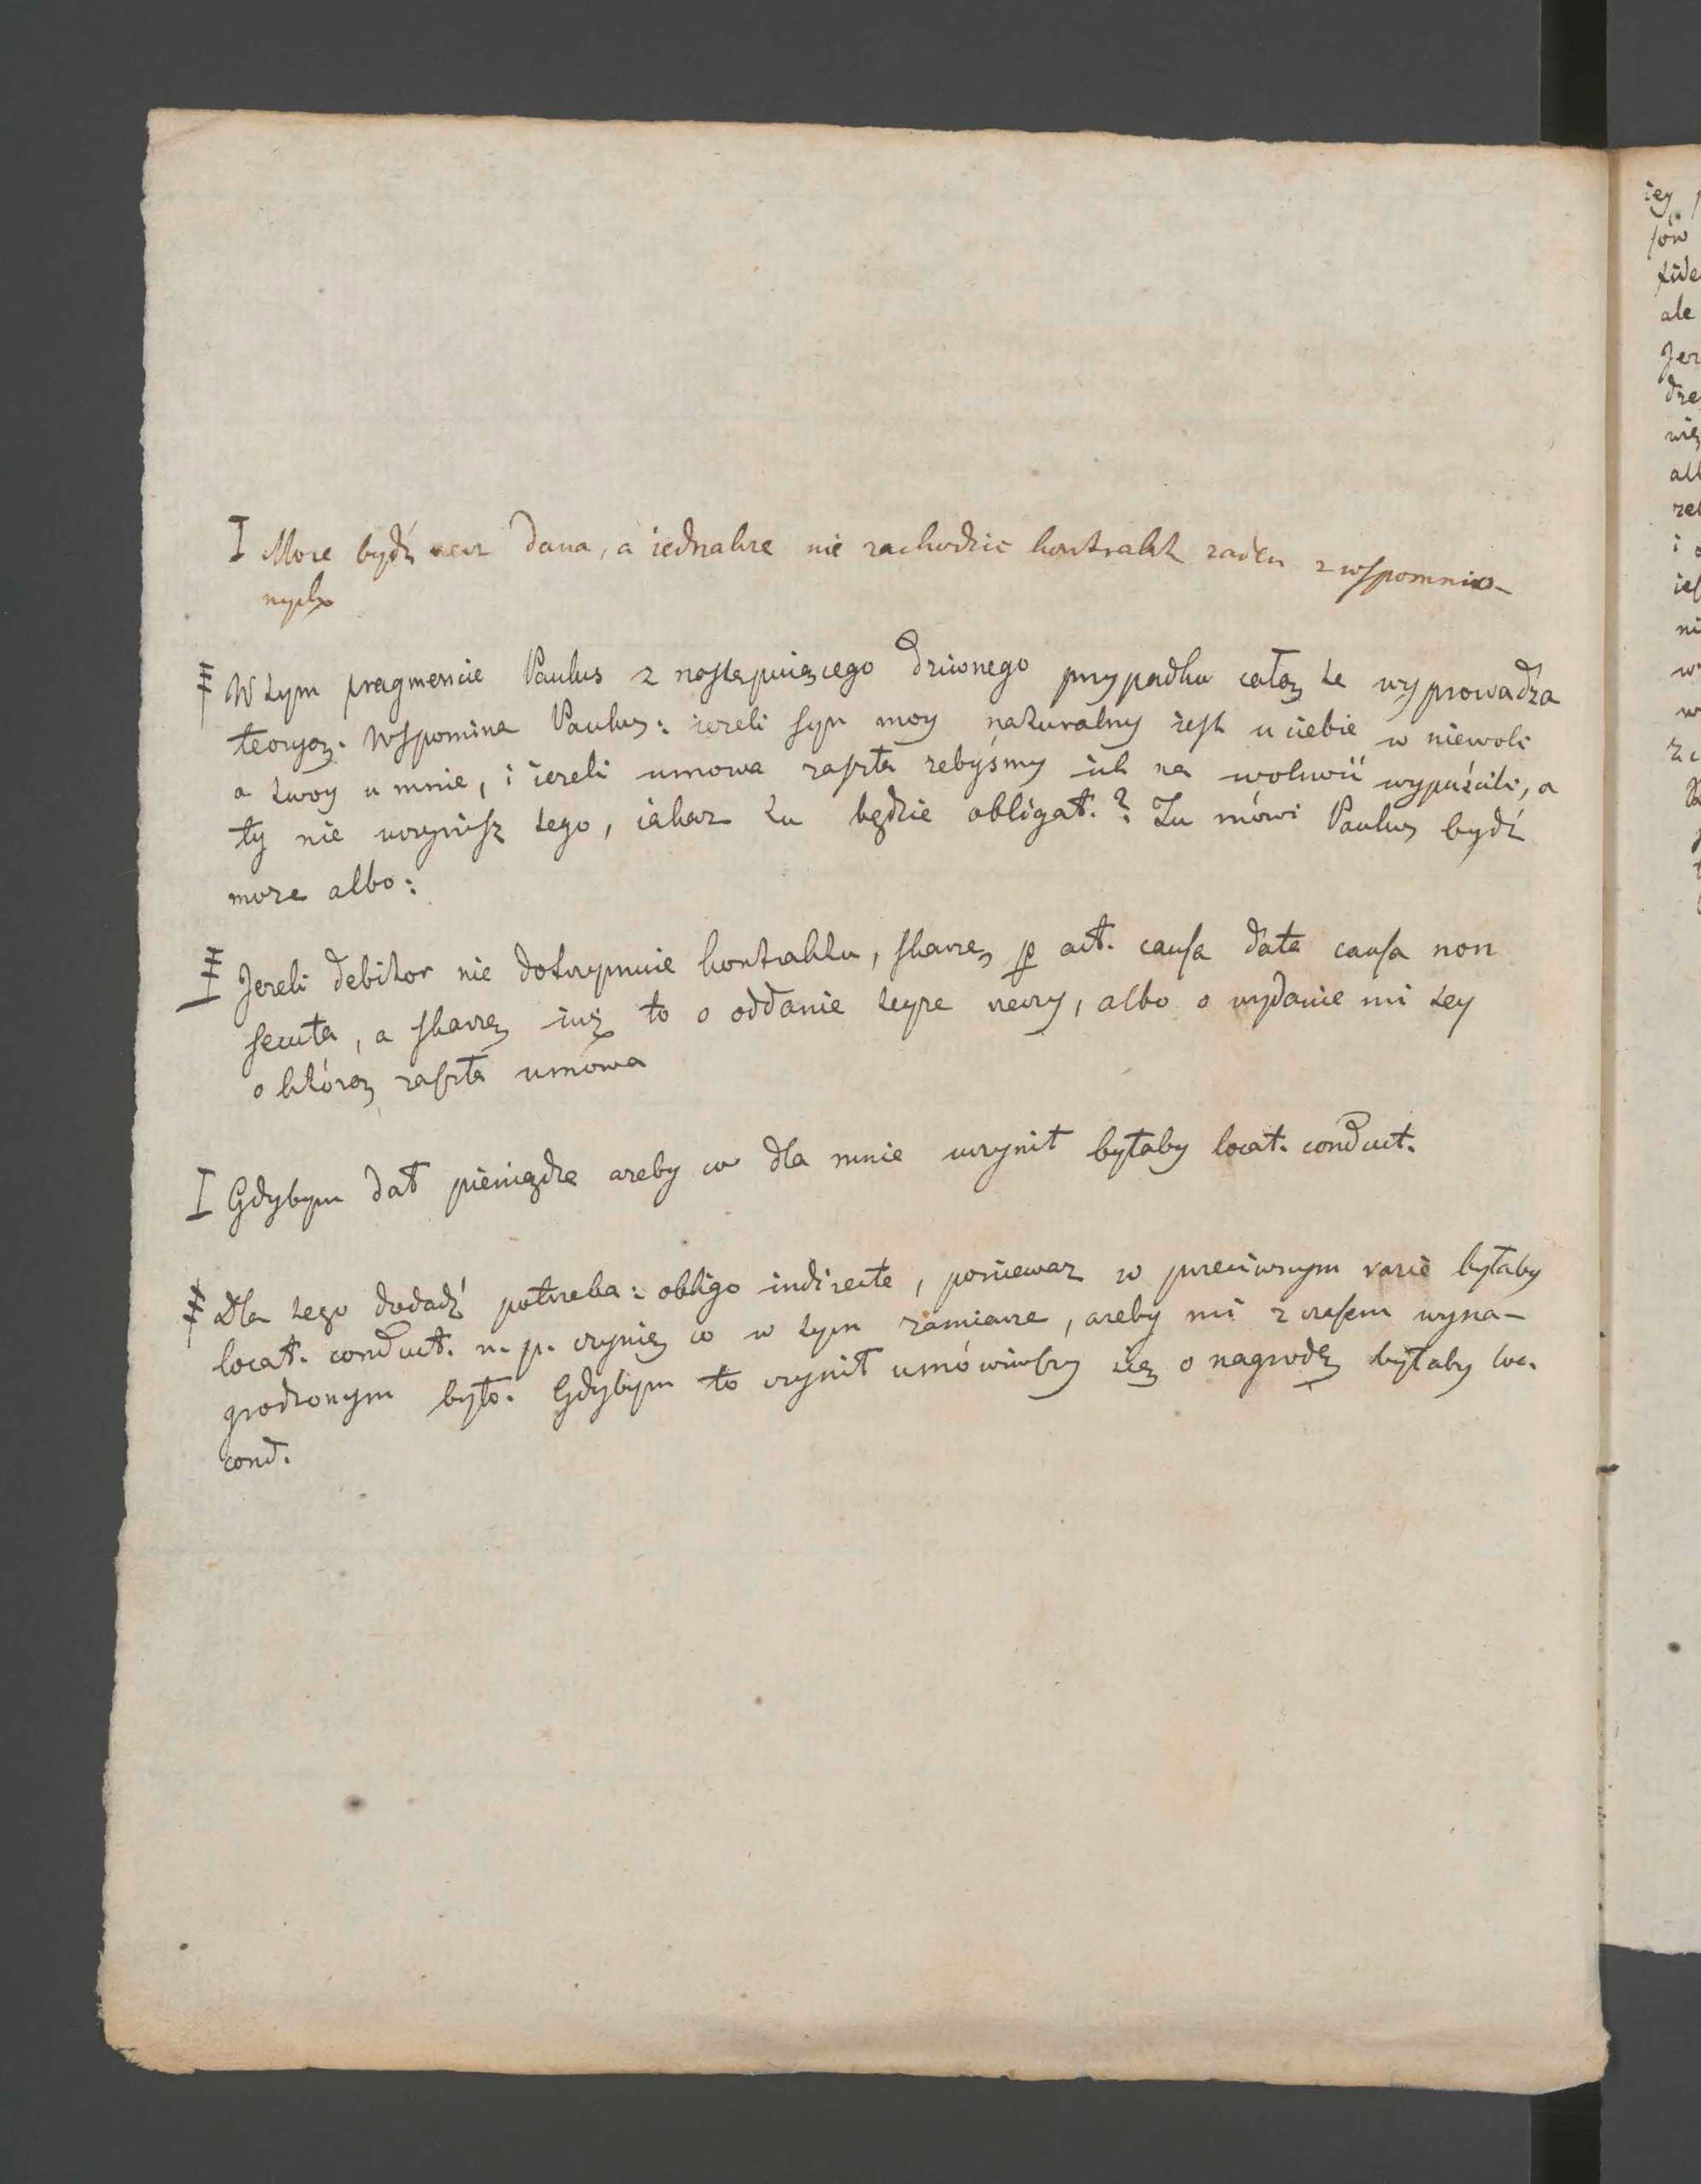 I Moze bydź recz dana, a iednakze nie zachodzic kontrakt zaden z wspomnio-
nych
W tym fragmencie Paulus z nastepuiącego dziwnego przypadku całą te wyprowadza
teoryą. Wspomina Paulus: iezeli syn moy naturalny iest u ciebie w niewoli
a twoy u mnie, i iezeli umowa zaszła zebyśmy ich na wolność wypuścili, a
ty nie uczynisz tego, iakaz tu będzie obligat.? Tu mówi Paulus bydź
moze albo:
Jezeli debitor nie dotrzymuie kontraktu, skarzę p act. causa data causa non
secuta, a skarzę iuz to o oddanie teyze rzeczy, albo o wydanie mi tey
o którą zaszła umowa
I Gdybym dał pieniądze azeby co dla mnie uczynił byłaby locat. conduct.
Dla tego dodadź potrzeba: obligo indirecte, poniewaz w przeciwnym razie byłaby
locat. conduct. n. p. czynię co w tym zamiarze, azeby mi z czasem wyna-
grodzonym było. Gdybym to czynił umówiwszy się o nagrodę byłaby loc.
cond.
iey
sów
ale
Jez
dze
wię
all
i
ni
w
w